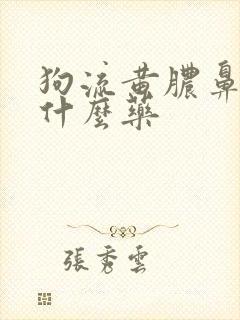 狗流黄膿鼻
什麼藥
張秀雲